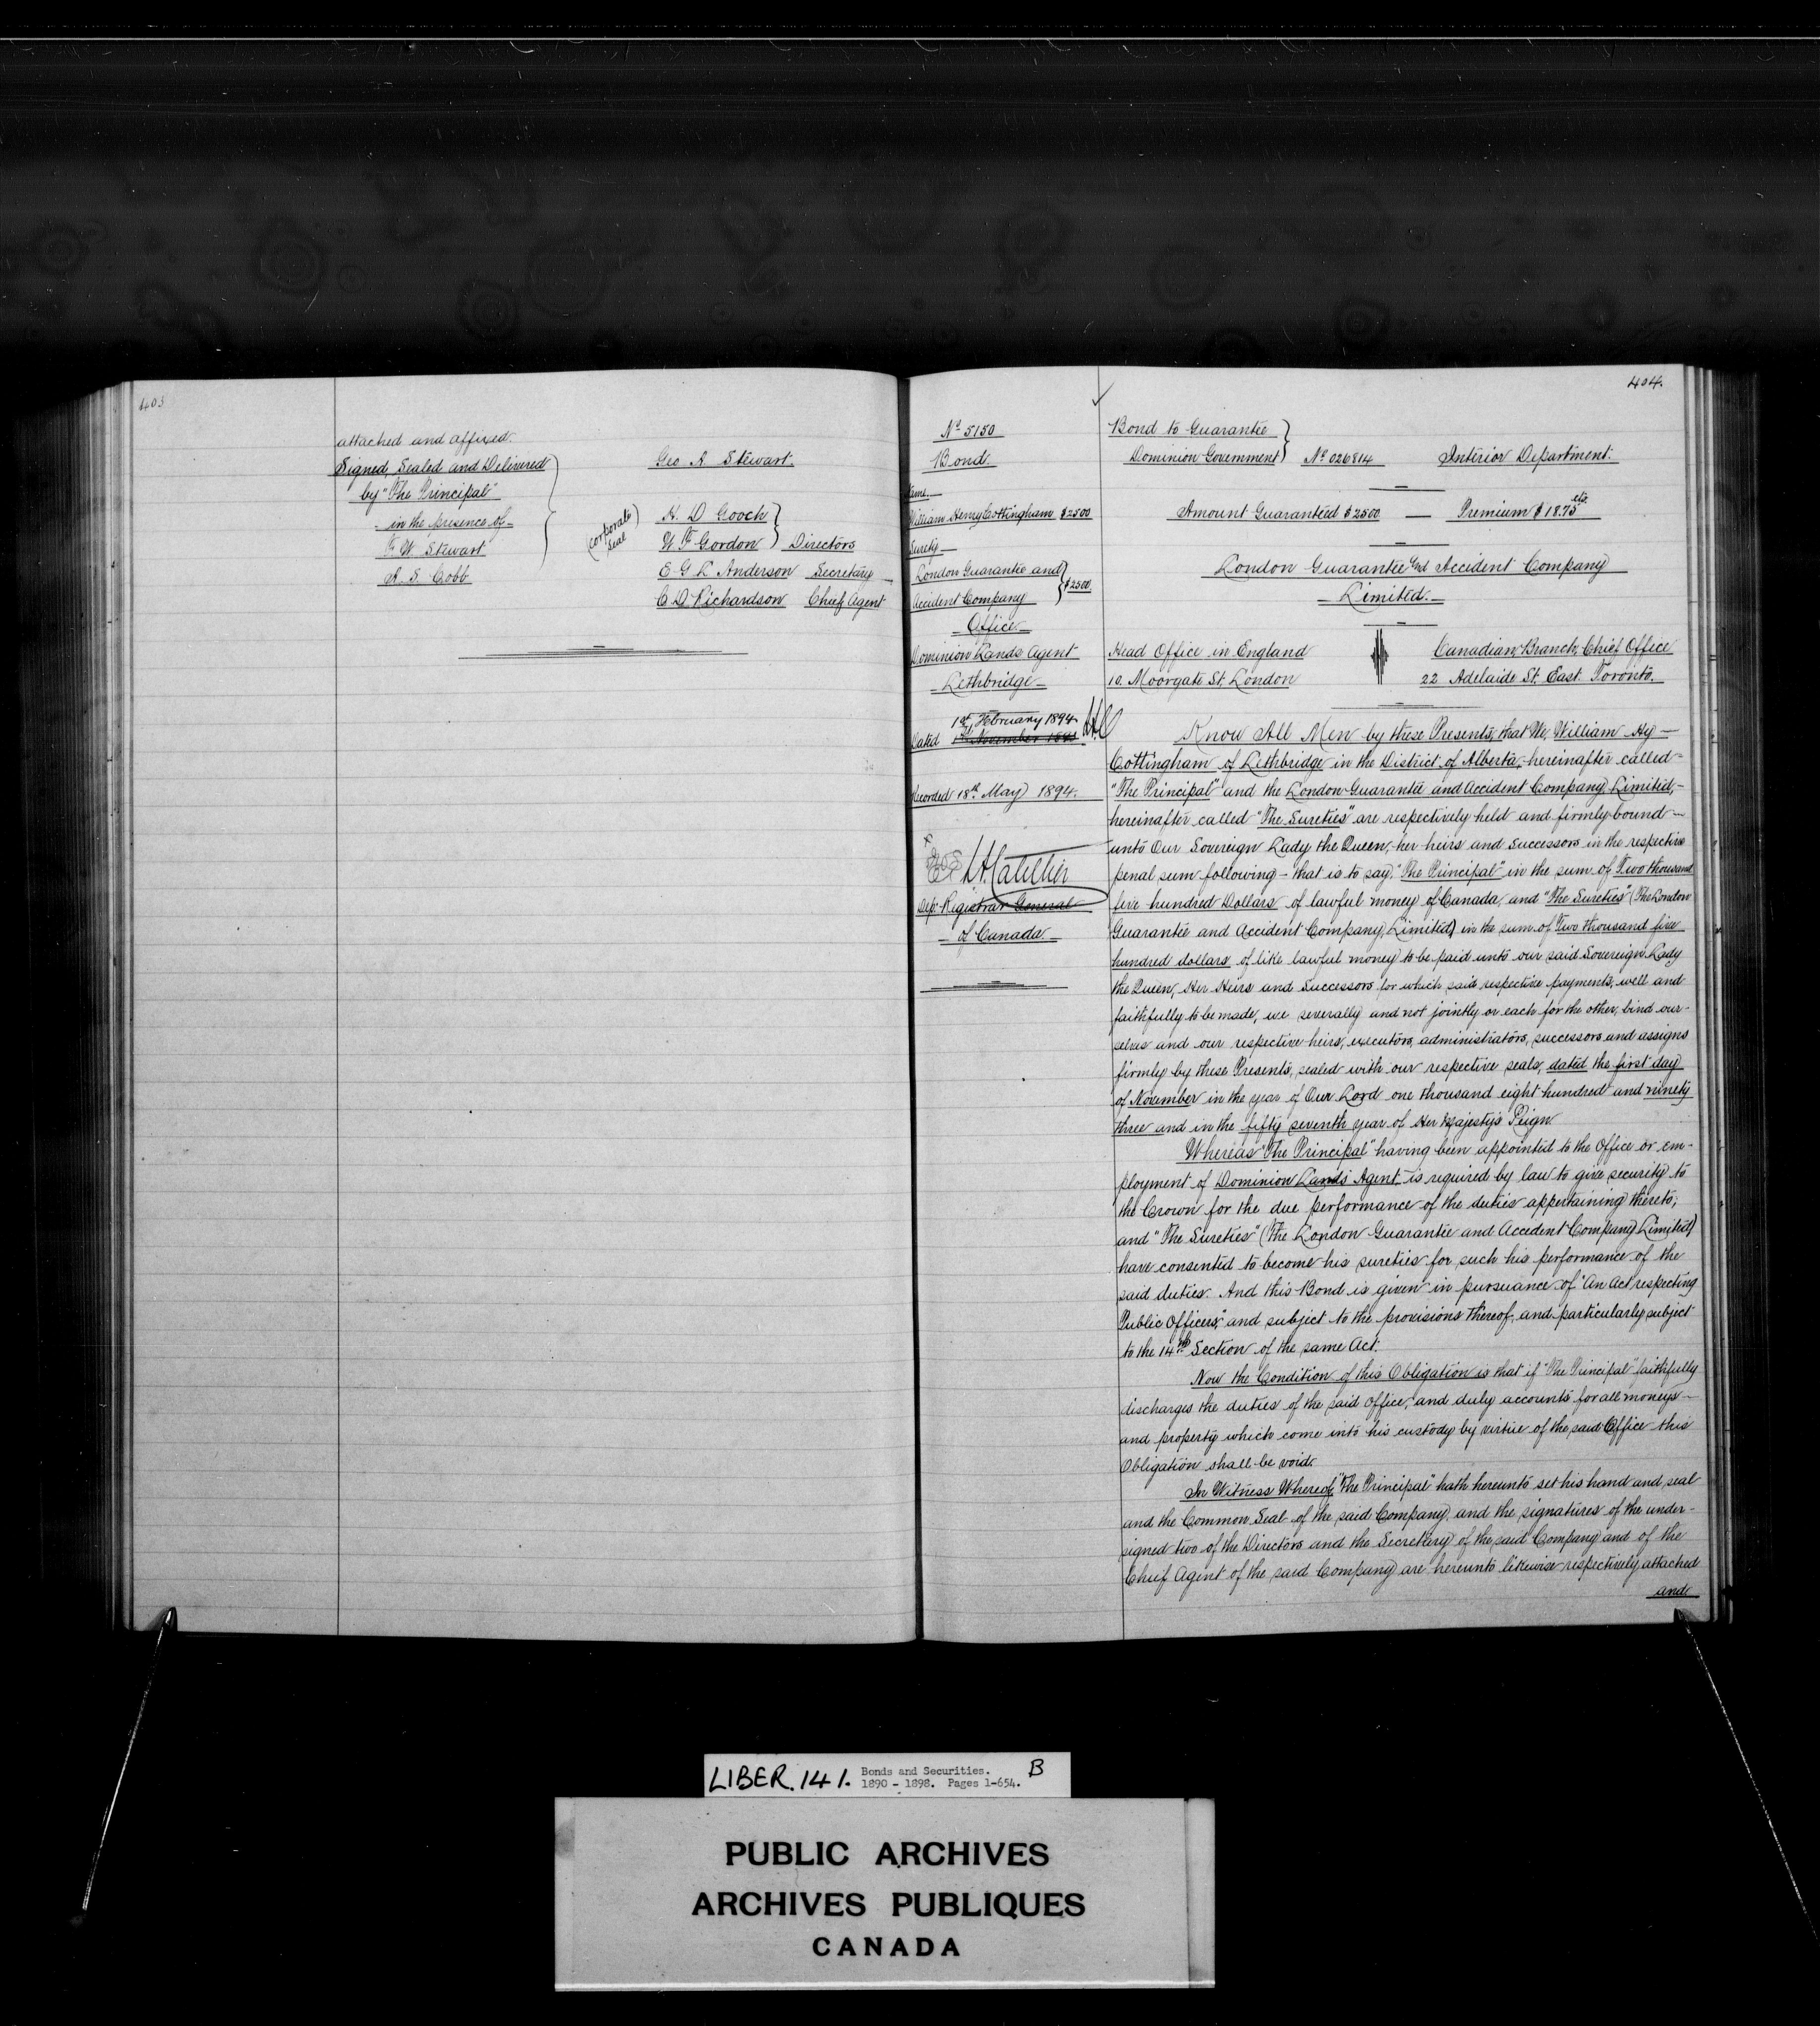 403
attached and affixed.
Signed, Sealed and Delivered
by "The Principal"
- in the presence of -
F. W. Stewart
A. S. Cobb
Geo A. Stewart.
(corporate seal)
H. D Gooch
W F Gordon } Directors
E G L Anderson Secretary
C D Richardson Chief Agent
404.
Nº 5150
Bond.
Name
William Henry Cottingham $2500
Surety
London Guarantee and
Accident Company } $2500
Office
Dominion Lands Agent
Lethbridge
1st February 1894
Dated 1st November 1893
Recorded 18th May 1894.
L A Catellier
Dep. Registrar General
of Canada
Bond to Guarantee
Dominion Government } Nº 026814 Interior Department.
Amount Guaranteed $2500 — Premium $18.75 cts
London Guarantee and Accident Company
Limited.
Head Office in England
10. Moorgate St, London
Canadian Branch, Chief Office
22 Adelaide St. East. Toronto.
Know All Men by these Presents, that We, William Hy
Cottingham of Lethbridge in the District of Alberta, hereinafter called
"The Principal" and the London Guarantee and Accident Company Limited,
hereinafter called "The Sureties" are respectively held and firmly bound
unto Our Sovereign Lady the Queen, her heirs and successors in the respective
penal sum following - that is to say, "The Principal" in the sum of Two thousand
five hundred Dollars of lawful money of Canada, and "The Sureties" (The London
Guarantee and Accident Company, Limited) in the sum of Two thousand five
hundred dollars of like lawful money to be paid unto our said Sovereign Lady
the Queen, Her Heirs and Successors for which said respective payments, well and
faithfully to be made, we severally and not jointly or each for the other, bind our-
selves and our respective heirs, executors, administrators, successors and assigns
firmly by these Presents, sealed with our respective seals, dated the first day
of November in the year of Our Lord one thousand eight hundred and ninety
three and in the fifty seventh year of Her Majesty's Reign.
Whereas "The Principal" having been appointed to the Office or em-
ployment of Dominion Lands Agent is required by law to give security to
the Crown for the due performance of the duties appertaining thereto,
and "The Sureties" (The London Guarantee and Accident Company Limited)
have consented to become his sureties for such his performance of the
said duties. And this Bond is given in pursuance of "An Act respecting
Public Officers," and subject to the provisions thereof, and particularly subject
to the 14th Section of the same Act.
Now the Condition of this Obligation is that if "The Principal" faithfully
discharges the duties of the said Office, and duly accounts for all moneys
and property which come into his custody by virtue of the said Office this
Obligation shall be void.
In Witness Whereof, "The Principal" hath hereunto set his hand and seal
and the Common Seal of the said Company, and the signatures of the under-
signed two of the Directors and the Secretary of the said Company and of the
Chief Agent of the said Company are hereunto likewise respectively attached
and
LIBER. 141. Bonds and Securities. B
1890 - 1898. Pages 1-654.
PUBLIC ARCHIVES
ARCHIVES PUBLIQUES
CANADA